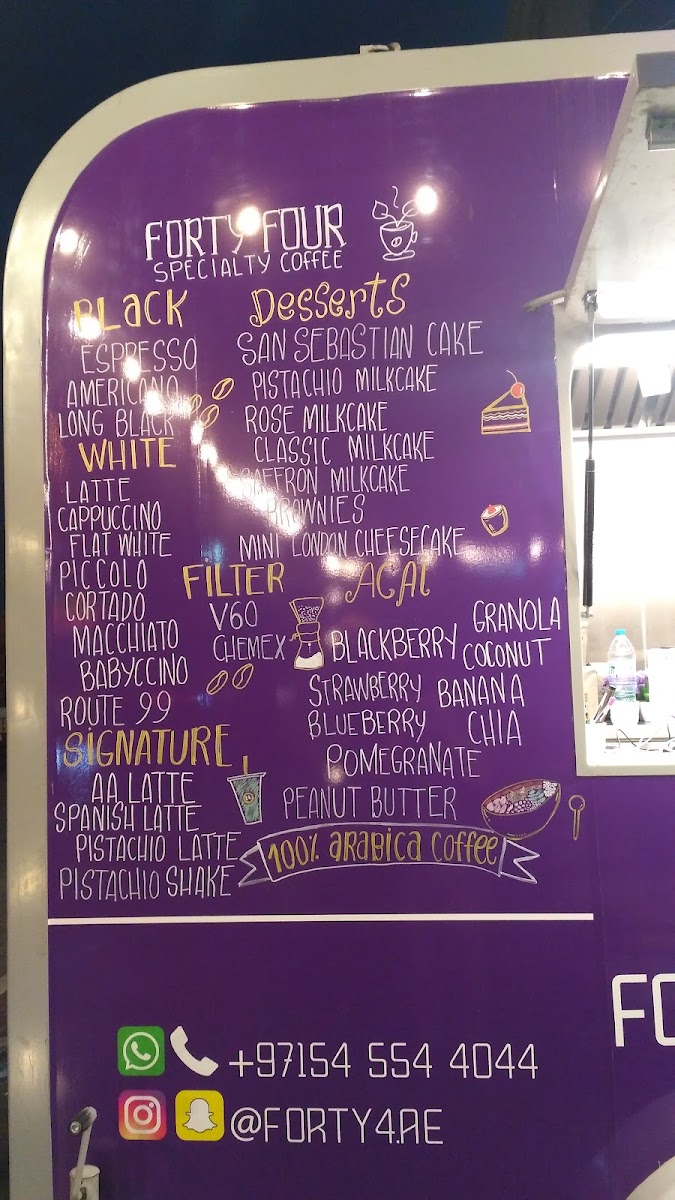 FORTY FOUR
SPECIALTY COFFEE
BLACK
ESPRESSO
AMERICANO
LONG BLACK
WHITE
LATTE
CAPPUCCINO
FLAT WHITE
PICCOLO
CORTADO
MACCHIATO
BABYCCINO
ROUTE 99
SIGNATURE
AA LATTE
SPANISH LATTE
PISTACHIO LATTE
PISTACHIO SHAKE
Desserts
SAN SEBASTIAN CAKE
PISTACHIO MILKCAKE
ROSE MILKCAKE
CLASSIC MILKCAKE
SAFFRON MILKCAKE
BROWNIES
MINI LONDON CHEESECAKE
FILTER
V60
CHEMEX
ACAI
BLACKBERRY
GRANOLA
COCONUT
STRAWBERRY
BANANA
BLUEBERRY
CHIA
POMEGRANATE
PEANUT BUTTER
100% arabica coffee
+97154 554 4044
@FORTY4.AE
FO